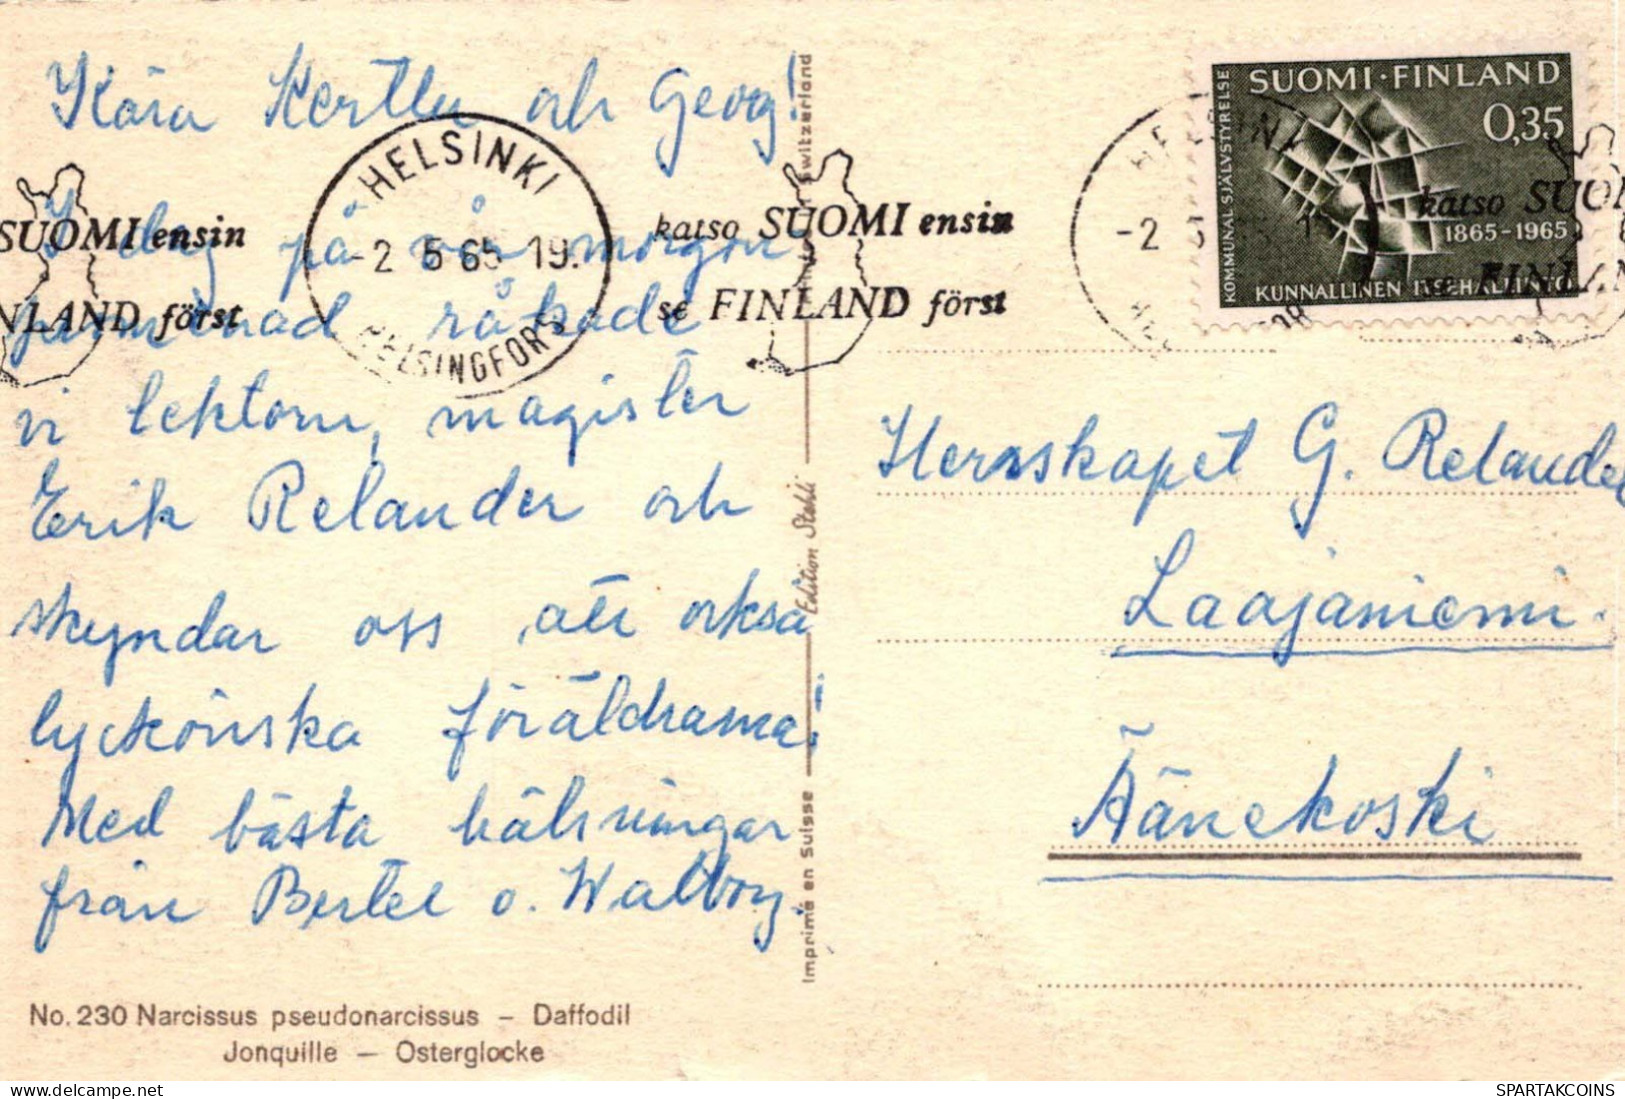 Kära Kerttu och Georg!
I dag på vår morgon
promenad råkade
vi lektorn, magister
Erik Relander och
skyndar oss att också
lyckönska föräldrarna!
Med bästa hälsningar
från Bertel o. Walborg.
No. 230 Narcissus pseudonarcissus – Daffodil
Jonquille – Osterglocke
SUOMI ensin
FINLAND först
HELSINKI
-2 5 65 19.
HELSINGFORS
katso SUOMI ensin
se FINLAND först
Imprimé en Suisse
Edition Stehli
Printed in Switzerland
SUOMI·FINLAND
0,35
KOMMUNAL SJÄLVSTYRELSE
1865–1965
KUNNALLINEN ITSEHALLINTO
HELSINKI
-2
katso SUO
se FINLAN
Herrskapet G. Relander
Laajaniemi.
Äänekoski
WWW.DELCAMPE.NET
SPARTAKCOINS